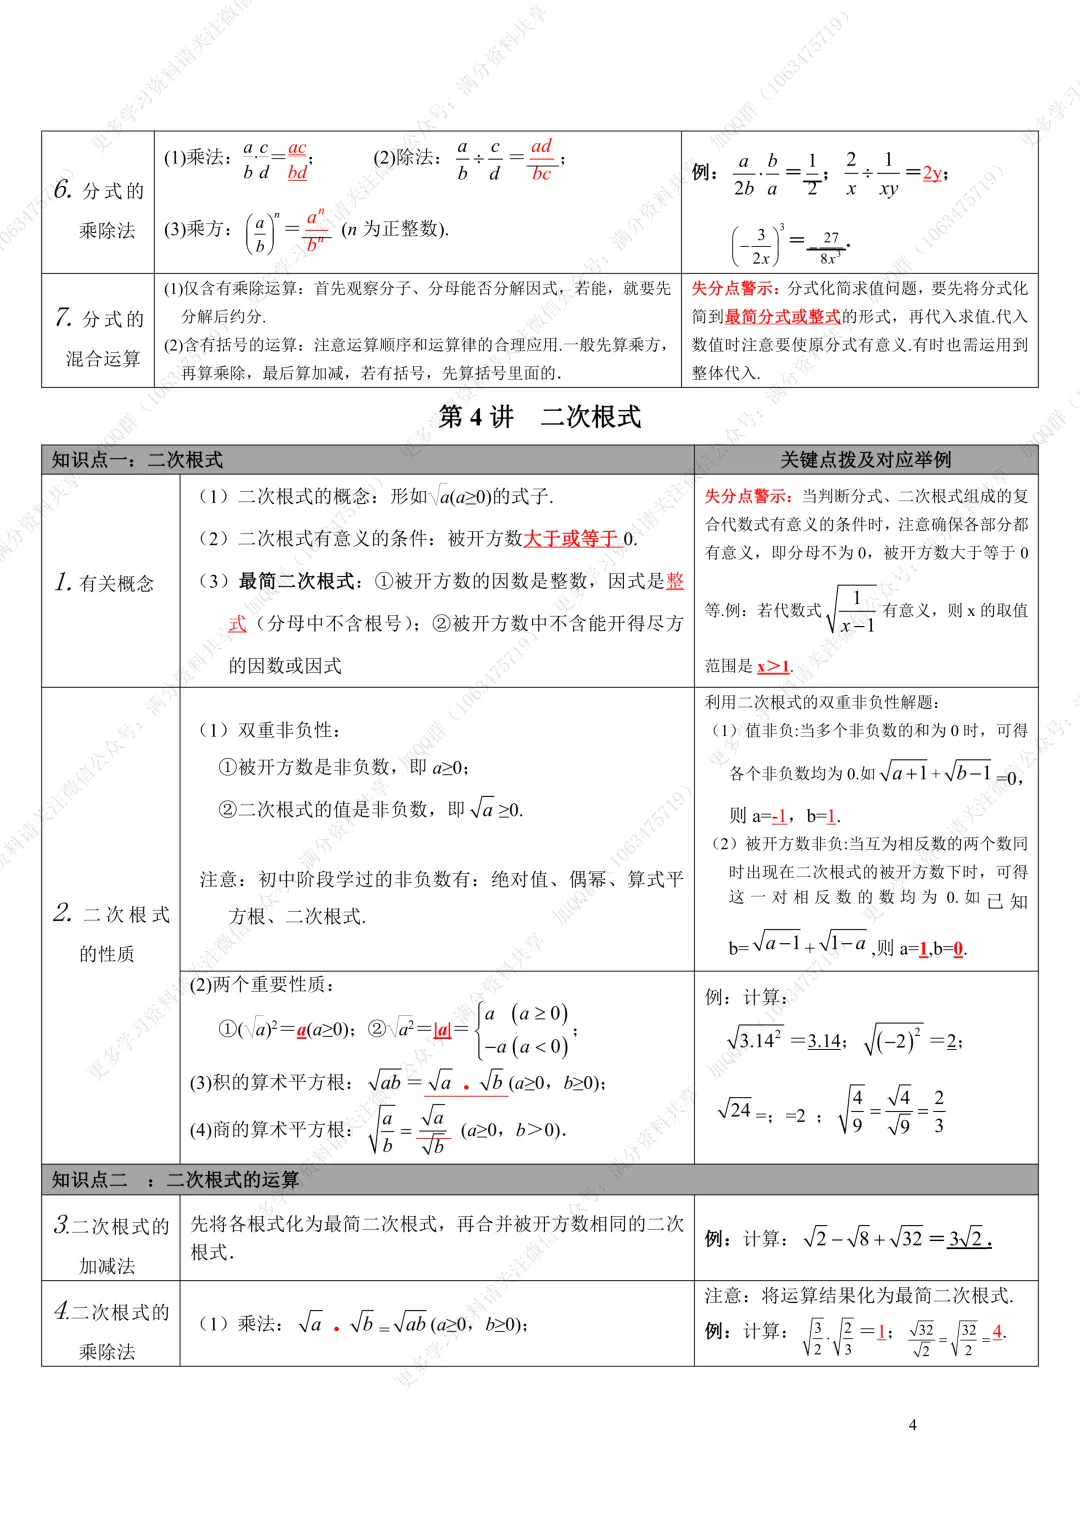 6. 分式的
乘除法
(1)乘法：a/b·c/d＝ac/bd； (2)除法：a/b÷c/d＝ad/bc；
(3)乘方：(a/b)ⁿ＝aⁿ/bⁿ (n 为正整数).
例：a/2b·b/a＝1/2；2/x÷1/xy＝2y；
(－3/2x)³＝－27/8x³.
7. 分式的
混合运算
(1)仅含有乘除运算：首先观察分子、分母能否分解因式，若能，就要先
分解后约分.
(2)含有括号的运算：注意运算顺序和运算律的合理应用.一般先算乘方，
再算乘除，最后算加减，若有括号，先算括号里面的.
失分点警示：分式化简求值问题，要先将分式化
简到最简分式或整式的形式，再代入求值.代入
数值时注意要使原分式有意义.有时也需运用到
整体代入.
第 4 讲 二次根式
知识点一：二次根式 关键点拨及对应举例
1. 有关概念
（1）二次根式的概念：形如√a(a≥0)的式子.
（2）二次根式有意义的条件：被开方数大于或等于 0.
（3）最简二次根式：①被开方数的因数是整数，因式是整
式（分母中不含根号）；②被开方数中不含能开得尽方
的因数或因式
失分点警示：当判断分式、二次根式组成的复
合代数式有意义的条件时，注意确保各部分都
有意义，即分母不为 0，被开方数大于等于 0
等.例：若代数式 √(1/(x－1)) 有意义，则 x 的取值
范围是 x＞1.
2. 二次根式
的性质
（1）双重非负性：
①被开方数是非负数，即 a≥0；
②二次根式的值是非负数，即 √a ≥0.
注意：初中阶段学过的非负数有：绝对值、偶幂、算式平
方根、二次根式.
利用二次根式的双重非负性解题：
（1）值非负:当多个非负数的和为 0 时，可得
各个非负数均为 0.如 √(a+1) + √(b－1) =0，
则 a=-1，b=1.
（2）被开方数非负:当互为相反数的两个数同
时出现在二次根式的被开方数下时，可得
这一对相反数的数均为 0.如已知
b= √(a－1) + √(1－a) ,则 a=1,b=0.
(2)两个重要性质：
①(√a)²＝a(a≥0)；②√a²＝|a|＝{a (a≥0) －a (a＜0)；
(3)积的算术平方根：√ab＝√a · √b (a≥0，b≥0)；
(4)商的算术平方根：√(a/b)＝√a/√b (a≥0，b＞0).
例：计算：
√3.14² ＝3.14；√(－2)² ＝2；
√24 =；=2 ；√(4/9)＝√4/√9＝2/3
知识点二 ：二次根式的运算
3.二次根式的
加减法
先将各根式化为最简二次根式，再合并被开方数相同的二次
根式.
例：计算：√2－√8＋√32＝3√2．
4.二次根式的
乘除法
（1）乘法：√a · √b＝√ab (a≥0，b≥0)；
注意：将运算结果化为最简二次根式.
例：计算：√(3/2)·√(2/3)＝1；√32/√2＝√(32/2)＝4.
4